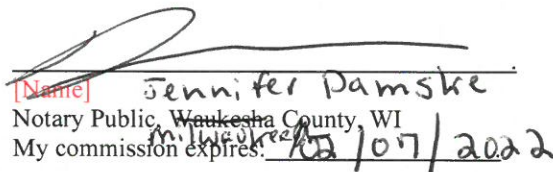 [Name] Jennifer Damske
Notary Public, Waukesha County, WI
Milwaukee
My commission expires: 02/07/2022